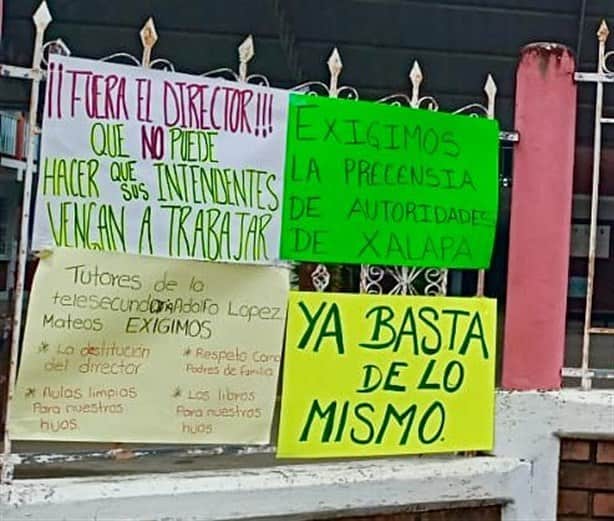 ¡¡FUERA EL DIRECTOR!!!
QUE NO PUEDE
HACER QUE SUS INTENDENTES
VENGAN A TRABAJAR
EXIGIMOS
LA PRECENSIA
DE AUTORIDADES
DE XALAPA
Tutores de la
telesecundaria Adolfo Lopez
Mateos EXIGIMOS
* La destitución
del director
* Aulas limpias
Para nuestros
hijos.
* Respeto Como
Padres de familia
* Los libros
Para nuestros
hijos
YA BASTA
DE LO
MISMO.